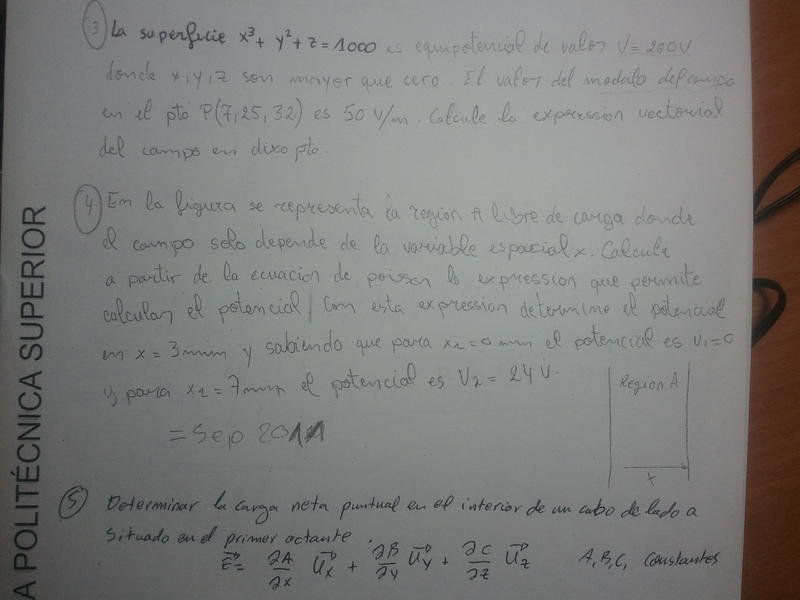 3 La superficie x³ + y² + z = 1000 es equipotencial de valor V = 200V
donde x, y, z son mayor que cero. El valor del modulo del campo
en el pto P(7,25,32) es 50 V/m. Calcule la expression vectorial
del campo en dixo pto.
4. En la figura se representa la region A libre de carga donde
el campo solo depende de la variable espacial x. Calcule
a partir de la ecuacion de poisson lo expression que permite
calcular el potencial. Con esta expression determine el potencial
en x = 3mm y sabiendo que para x₁=0 mm el potencial es V₁=0
y para x₂=7mm el potencial es V₂ = 24 V.
Region A
= Sep 2011
x
5 Determinar la carga neta puntual en el interior de un cubo de lado a
situado en el primer octante.
E⃗ = ∂A/∂x U⃗x + ∂B/∂y U⃗y + ∂C/∂z U⃗z A, B, C, constantes
A POLITÉCNICA SUPERIOR